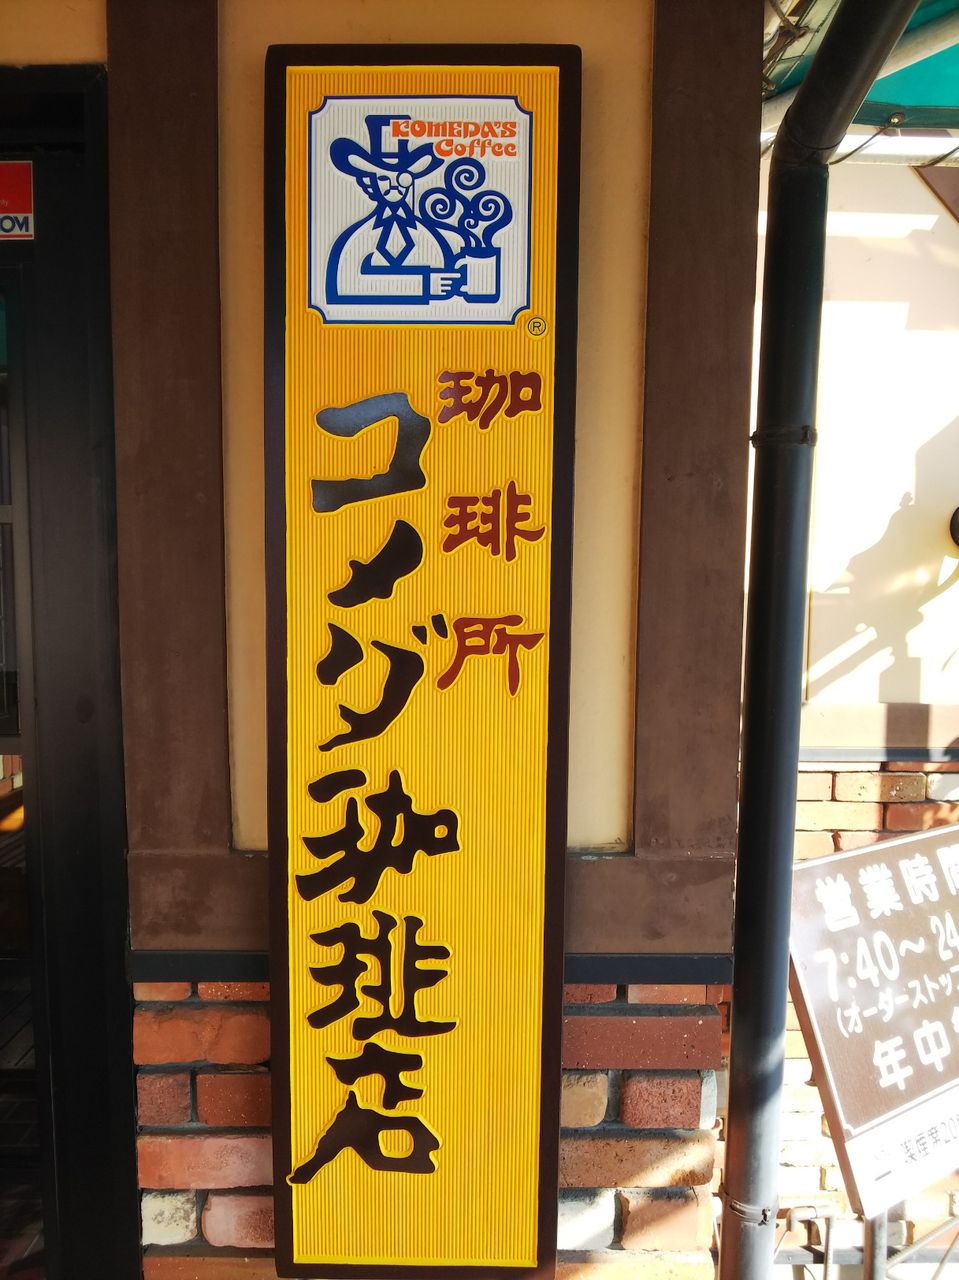 KOMEDA'S
Coffee
®
珈琲所
コメダ珈琲店
営業時間
7:40～24
(オーダーストップ
年中